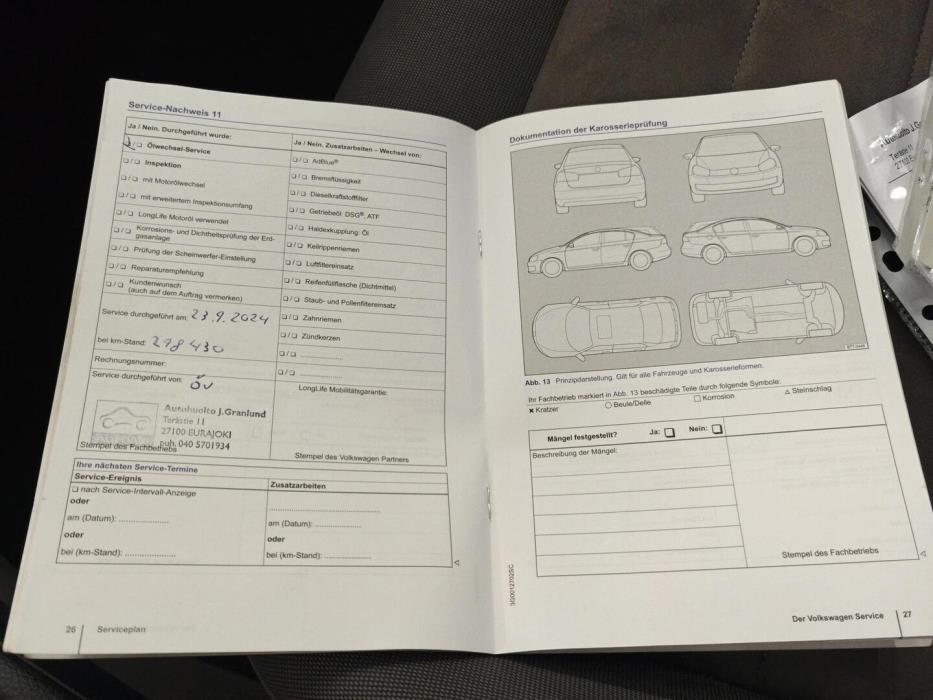 Service-Nachweis 11
Ja / Nein. Durchgeführt wurde:
Ölwechsel-Service
Inspektion
mit Motorölwechsel
mit erweitertem Inspektionsumfang
LongLife Motoröl verwendet
Korrosions- und Dichtheitsprüfung der Erd-
gasanlage
Prüfung der Scheinwerfer-Einstellung
Reparaturempfehlung
Kundenwunsch
(auch auf dem Auftrag vermerken)
Service durchgeführt am: 23.9.2024
bei km-Stand: 298 430
Rechnungsnummer:
Service durchgeführt von:
Autohuolto J.Granlund
Terästie 11
27100 EURAJOKI
puh. 040 5701934
Stempel des Fachbetriebs
Ja / Nein. Zusatzarbeiten – Wechsel von:
AdBlue®
Bremsflüssigkeit
Dieselkraftstofffilter
Getriebeöl: DSG®, ATF
Haldexkupplung: Öl
Keilrippenriemen
Luftfiltereinsatz
Reifenfüllflasche (Dichtmittel)
Staub- und Pollenfiltereinsatz
Zahnriemen
Zündkerzen
LongLife Mobilitätsgarantie:
Stempel des Volkswagen Partners
Ihre nächsten Service-Termine
Service-Ereignis
nach Service-Intervall-Anzeige
oder
am (Datum):
oder
bei (km-Stand):
Zusatzarbeiten
am (Datum):
oder
bei (km-Stand):
26 Serviceplan
Dokumentation der Karosserieprüfung
Abb. 13 Prinzipdarstellung. Gilt für alle Fahrzeuge und Karosserieformen.
Ihr Fachbetrieb markiert in Abb. 13 beschädigte Teile durch folgende Symbole:
Kratzer Beule/Delle Korrosion Steinschlag
Mängel festgestellt? Ja: Nein:
Beschreibung der Mängel:
Stempel des Fachbetriebs
Der Volkswagen Service 27